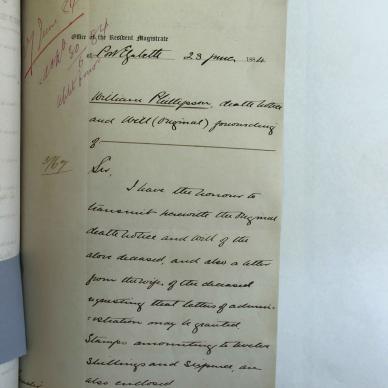 7 June 84
Office of the Resident Magistrate
Port Elizabeth 23 June 1884
William Phillipson, death notice
and Will (Original) forwarding
of
3/167
Sir,
I have the honour to
transmit herewith the Original
death notice and Will of the
above deceased, and also a letter
from the wife of the deceased
requesting that letters of admin-
-istration may be granted
Stamps amounting to twelve
Shillings and Sixpence, are
also enclosed